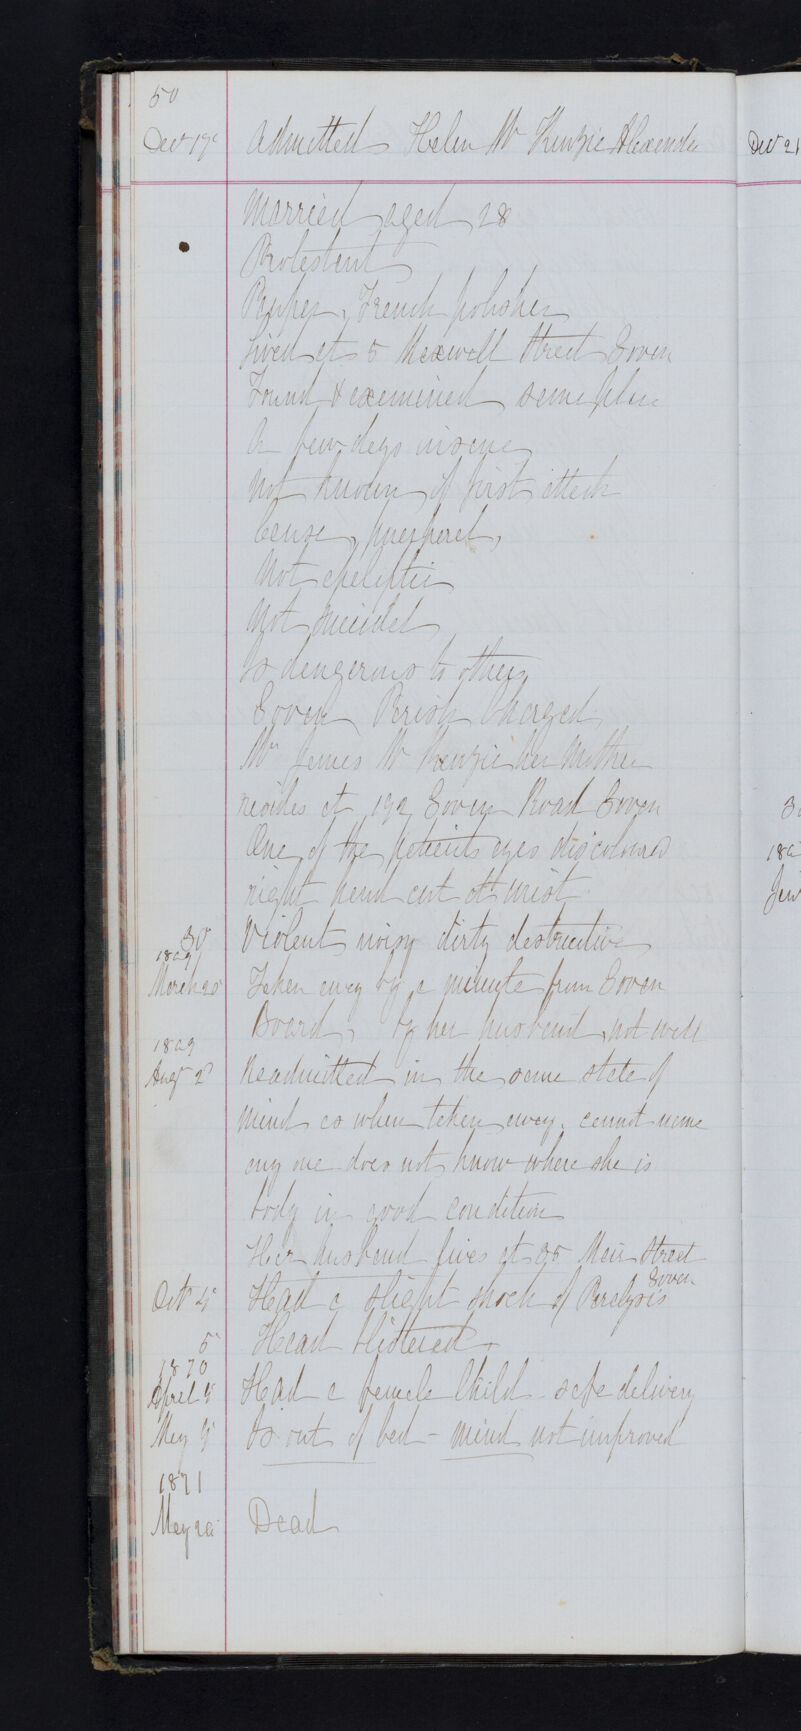 50
Decr 19th Admitted Helen Mc Kenzie Alexander
Married aged 28
Protestant
Pauper, French polisher
Lived at 5 Maxwell Street Govan
Found & examined same place
A few days insane
Not known if first attack
Cause, puerperal,
Not epileptic
Not suicidal
Is dangerous to others
Govan Parish Charged
Mrs James Mc Kenzie her Mother
resides at 192 Govan Road Govan
One of the patients eyes discoloured
right hand cut at wrist
30 Violent noisy dirty destructive
1869
March 20 Taken away by a minute from Govan
Board, by her husband, not well
1869
Augt 2d Readmitted in the same state of
mind as when taken away. cannot name
any one does not know where she is
body in good condition
Her husband lives at 35 Main Street
Govan
Octr 4 Had a slight shock of Paralysis
5 Head blistered.
1870
April Had a female Child safe delivery
May Is out of bed - mind not improved
1871
May Dead
Decr 21